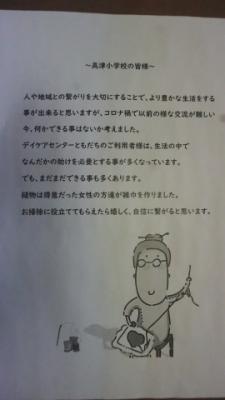 ～高津小学校の皆様～
人や地域との繋がりを大切にすることで、より豊かな生活をする
事が出来ると思いますが、コロナ禍で以前の様な交流が難しい
今、何かできる事はないか考えました。
デイケアセンターともだちのご利用者様は、生活の中で
なんだかの助けを必要とする事が多くなっています。
でも、まだまだできる事も多くあります。
縫物は得意だった女性の方達が雑巾を作りました。
お掃除に役立ててもらえたら嬉しく、自信に繋がると思います。